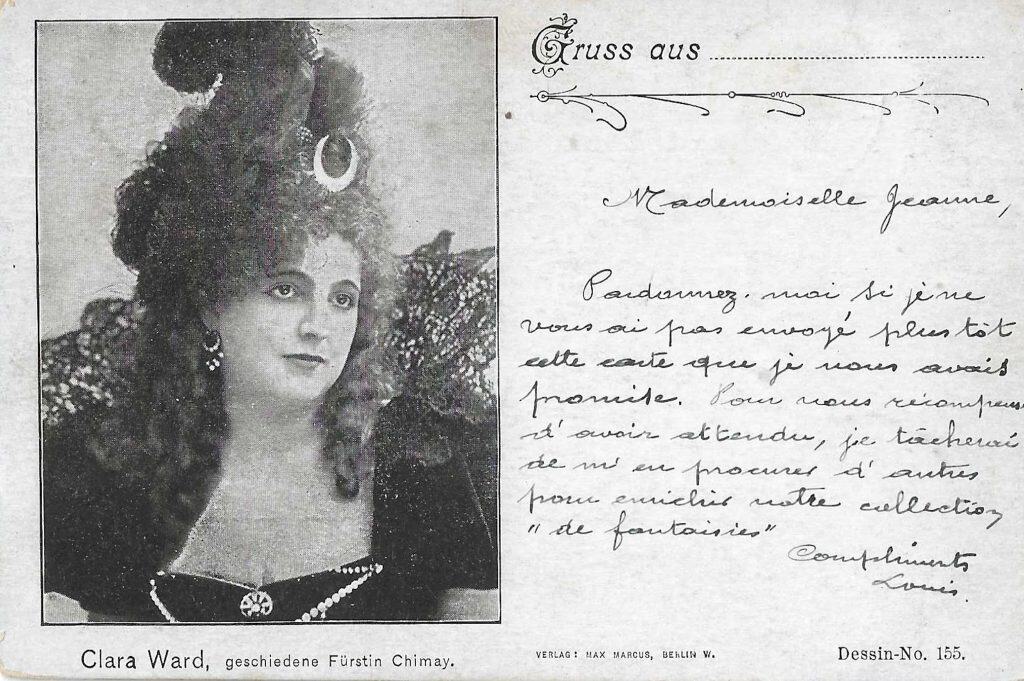 Gruss aus
Mademoiselle Jeanne,
Pardonnez-moi si je ne
vous ai pas envoyé plus tôt
cette carte que je vous avais
promise. Pour vous récompens
d'avoir attendu, je tâcherai
de m'en procurer d'autres
pour enrichir votre collection
"de fantaisies"
Compliments
Louis.
Clara Ward, geschiedene Fürstin Chimay.
VERLAG: MAX MARCUS, BERLIN W.
Dessin-No. 155.